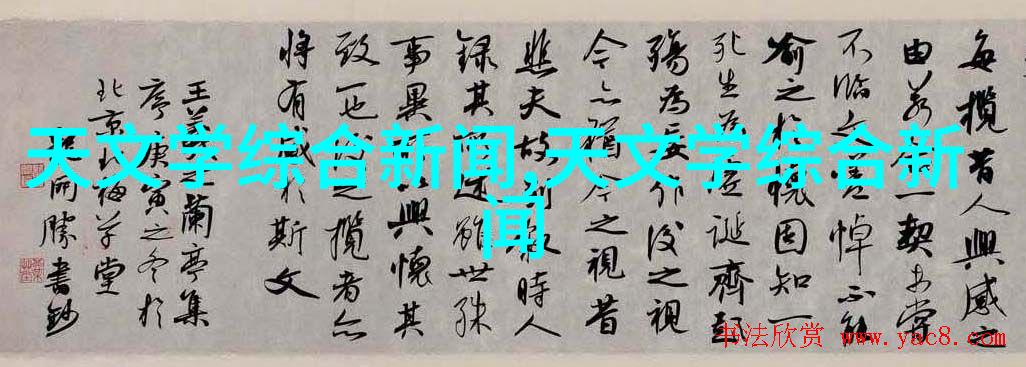 每攬昔人興感之
由若合一契未嘗
不臨文嗟悼不能
喻之於懷固知一
死生為虛誕齊彭
殤為妄作後之視
今亦猶今之視昔
悲夫故列敘時人
錄其所述雖世殊
事異所以興懷其
致一也後之攬者亦
將有感於斯文
王羲之蘭亭集
序庚寅之冬於
北京梅堂
開勝書鈔
天文学综合新闻,天文学综合新
闻
书法欣赏 www.yac8.com